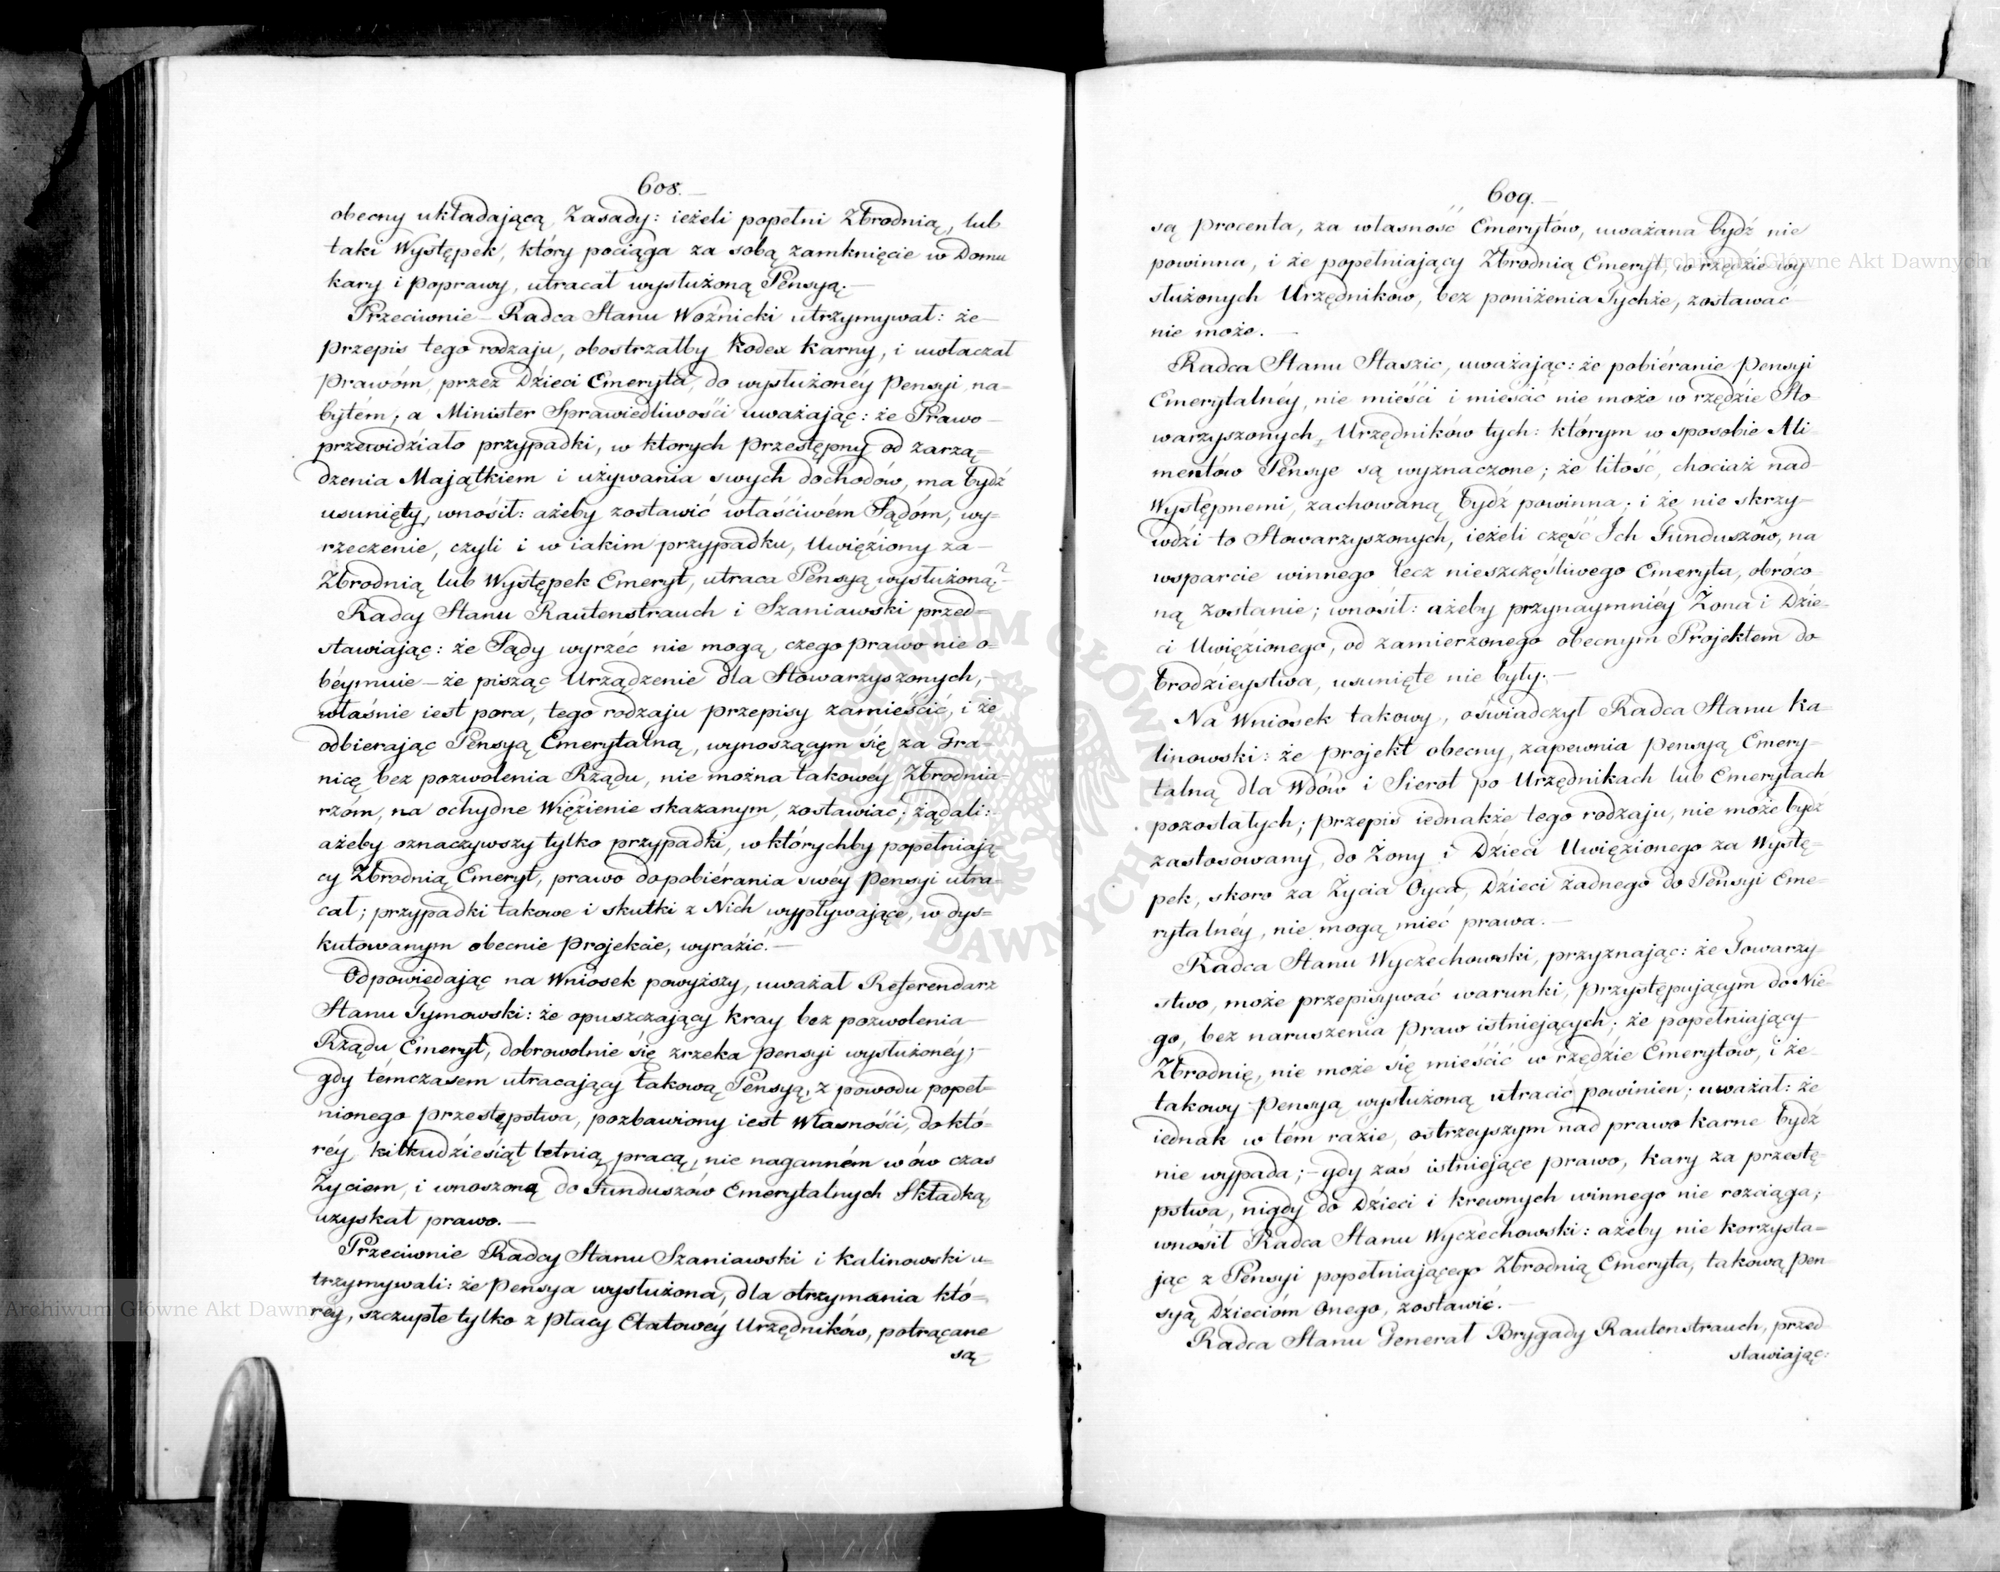 608.
obecny układającą Zasady: ieżeli popełni Zbrodnią, lub
taki Występek, który pociąga za sobą zamknięcie w Domu
kary i poprawy, utracał wysłużoną Pensyą.—
Przeciwnie – Radca Stanu Woźnicki utrzymywał: że—
przepis tego rodzaju, obostrzałby Kodex Karny, i uwłaczał
Prawóm, przez Dzieci Emeryta, do wysłużonéy Pensyi, na-
bytém; a Minister Sprawiedliwości uważając: że Prawo—
przewidziało przypadki, w ktorych Przestępny od zarzą-
dzenia Majątkiem i używania swych dochodów, ma bydź
usunięty, wnosił: ażeby zostawić właściwém Sądóm, wy-
rzeczenie, czyli i w iakim przypadku, Uwięziony za—
Zbrodnią lub Występek Emeryt, utraca Pensyą wysłużoną?—
Radcy Stanu Rautenstrauch i Szaniawski przed-
stawiając: że Sądy wyrzéc nie mogą, czego prawo nie o-
béymuie – że pisząc Urządzenie dla Stowarzyszonych,—
właśnie iest pora, tego rodzaju przepisy zamieścić, i że
odbierając Pensyą Emerytalną, wynoszącym się za Gra-
nicę bez pozwolenia Rządu, nie można takowéy Zbrodnia-
rzóm, na ochydne Więzienie skazanym, zostawiać; żądali:
ażeby oznaczywszy tylko przypadki, w którychby popełniają-
cy Zbrodnią Emeryt, prawo do pobiérania swéy Pensyi utra-
cał; przypadki takowe i skutki z Nich wypływające, w dys-
kutowanym obecnie Projekcie, wyrazić.—
Odpowiedając na Wniosek powyższy, uważał Referendarz
Stanu Tymowski: że opuszczający kray bez pozwolenia—
Rządu Emeryt, dobrowolnie się zrzeka Pensyi wysłużonéy;—
gdy temczasem utracający takową Pensyą, z powodu popeł-
nionego przestępstwa, pozbawiony iest Własności, do któ-
réy, kilkudziesiąt letnią pracą, nie naganném w ów czas
Życiem, i wnoszoną do Funduszów Emerytalnych Składką,
uzyskał prawo.—
Przeciwnie Radcy Stanu Szaniawski i Kalinowski u-
trzymywali: że Pensya wysłużona, dla otrzymania któ-
réy, szczupłe tylko z płacy Etatowéy Urzędników, potrącane
są
609.
są procenta, za własność Emerytów, uważana bydź nie
powinna, i że popełniający Zbrodnią Emeryt, w rzędzie wy
służonych Urzędników, bez poniżenia Tychże, zostawać
nie może.—
Radca Stanu Staszic, uważając: że pobiéranie Pensyi
Emerytalnéy, nie mieści i mieścić nie może w rzędzie Sto-
warzyszonych, Urzędników tych: którym w sposobie Ali-
mentów Pensye są wyznaczone; że litość, chociaż nad
Występnemi, zachowaną bydź powinna; i że nie skrzy-
wdzi to Stowarzyszonych, ieżeli część Ich Funduszów, na
wsparcie winnego lecz nieszczęśliwego Emeryta, obróco-
ną zostanie; wnosił: ażeby przynaymniéy Żona i Dzie-
ci Uwięzionego, od zamierzonego obecnym Projektem do-
brodzieystwa, usunięte nie były.—
Na Wniosek takowy, oświadczył Radca Stanu Ka-
linowski: że projekt obecny, zapewnia Pensyą Emery-
talną dla Wdów i Sierot po Urzędnikach lub Emerytach
pozostałych; przepis iednakże tego rodzaju, nie może bydź
zastosowany, do Żony i Dzieci Uwięzionego za Wystę-
pek, skoro za Życia Oyca, Dzieci żadnego do Pensyi Eme-
rytalnéy, nie mogą mieć prawa.—
Radca Stanu Wyczechowski, przyznając: że Towarzy-
stwo, może przepisywać warunki, przystępującym do Nie-
go, bez naruszenia Praw istniejących; że popełniający—
Zbrodnię, nie może się mieścić w rzędzie Emerytów, i że—
takowy Pensyą wysłużoną utracić powinien; uważał: że
iednak w tém razie, ostrzeyszym nad prawo karne bydź
nie wypada;—gdy zaś istniejące prawo, kary za przestę-
pstwa, nigdy do Dzieci i krewnych winnego nie rozciąga;
wnosił Radca Stanu Wyczechowski: ażeby nie korzysta-
jąc z Pensyi popełniającego Zbrodnią Emeryta, takową Pen-
syą Dziecióm Onego, zostawić.—
Radca Stanu Generał Brygady Rautenstrauch, przed-
stawiając:
Archiwum Główne Akt Dawnych
Archiwum Główne Akt Dawnych
ARCHIWUM GŁÓWNE AKT DAWNYCH